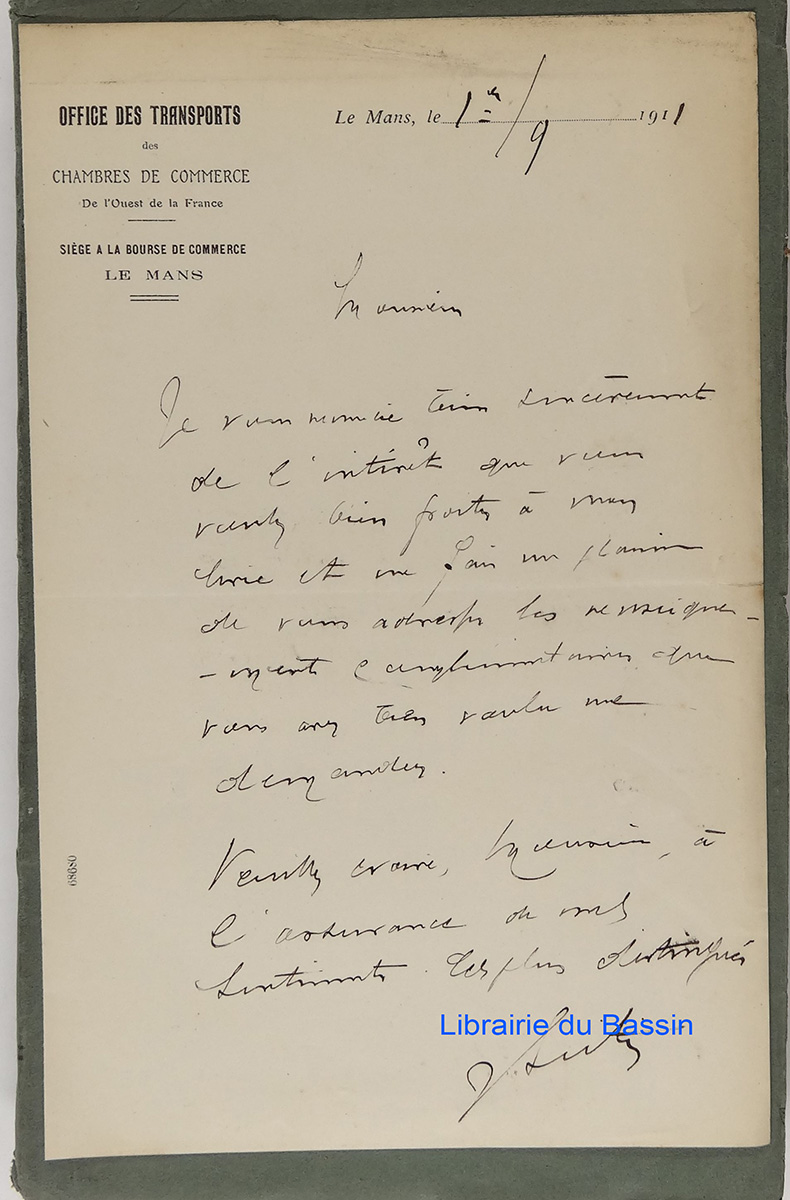 OFFICE DES TRANSPORTS
des
CHAMBRES DE COMMERCE
De l'Ouest de la France
SIÈGE A LA BOURSE DE COMMERCE
LE MANS
Le Mans, le 1er/9 1911
Monsieur
Je vous remercie bien sincèrement
de l'intérêt que vous
voulez bien porter à mon
livre et me fais un plaisir
de vous adresser les renseigne-
-ments complémentaires que
vous avez bien voulu me
demander.
Veuillez croire, Monsieur, à
l'assurance de mes
sentiments les plus distingués
68680
Librairie du Bassin